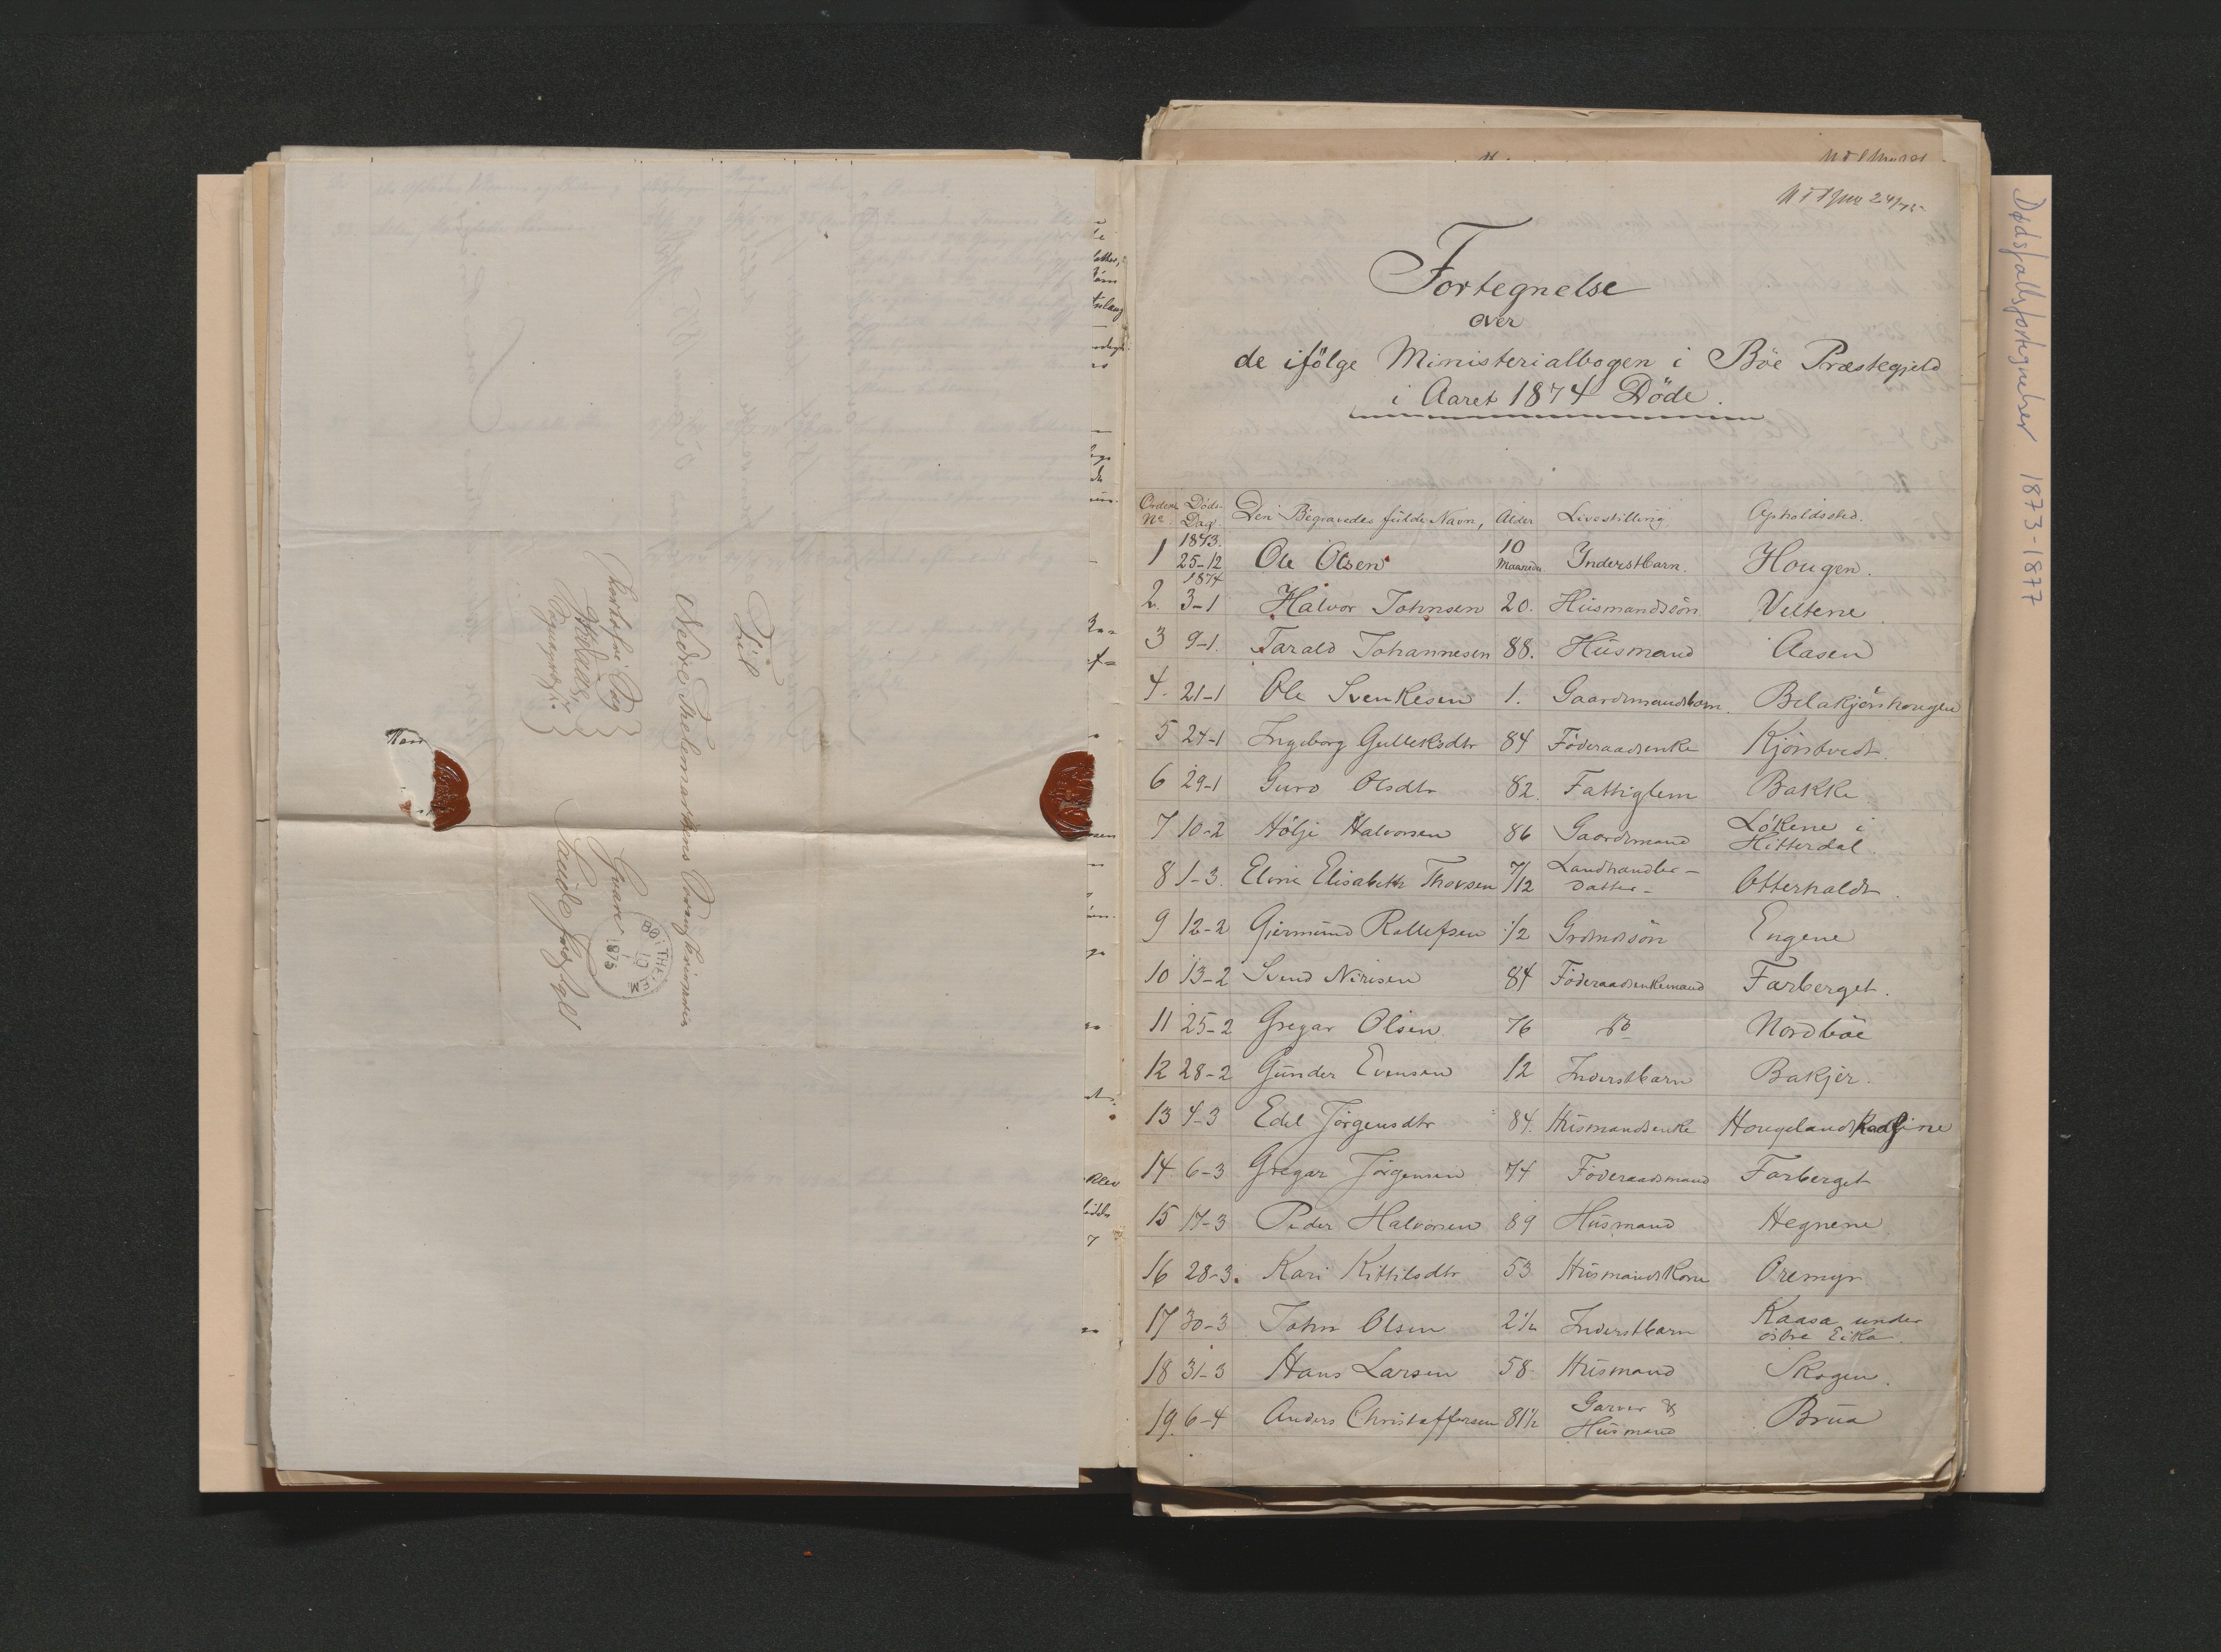 Til
Nedre Thelemarkens Sorenskriverie
Gvarv
Saude Prgjld
Portofri Sag
BÖ I THEL:EM.
10
1
1875
Fortegnelse
over
de ifölge Ministerialbogen i Böe Præstegjeld
i Aaret 1874 Döde.
Ordens No. Döds-Dag. Den Begravedes fulde Navn, Alder Livsstilling. Opholdssted.
1 1873. 25-12 Ole Olsen 10 Maaneder Inderstbarn. Hougen.
2. 1874 3-1 Halvor Johnsen 20. Husmandssön Veltene.
3 9-1. Tarald Johannesen 88. Husmand Aasen
4. 21-1 Ole Svenkesen 1. Gaardmandsbarn. Belakjörshougen
5 24-1 Ingeborg Gulleksdtr 84 Föderaadsenke Kjönbvedt.
6 29-1 Guro Olsdtr 82. Fattiglem Bakke
7 10-2 Hölje Halvorsen 86 Gaardmand Lökene i Hitterdal.
8 1-3. Eline Elisabeth Thovsen 7/12 Landhandler-Datter- Otterholdt.
9 12-2 Gjermund Rollefsen 1/2 Grdmdssön Engene
10 13-2 Svend Nirisen 84 Föderaadsenkemand Farberget.
11 25-2 Gregar Olsen 76 do Nordböe
12 28-2 Gunder Evensen 12 Inderstbarn Bakjer.
13 4-3 Edel Jörgensdtr 84. Husmandsenke Hougelandskaasine
14 6-3 Gregar Jörgensen 74 Föderaadsmand Farberget
15 17-3 Peder Halvorsen 89 Husmand Hegnene
16 28-3. Kari Kittilsdtr 53 Husmandskone Oremyr
17 30-3 John Olsen 2 1/2 Inderstbarn Kaasa under östre Eika.
18 31-3 Hans Larsen 58 Husmand Skogen.
19. 6-4 Anders Christoffersen 81 1/2 Garver & Husmand Brua
Dødsfallsfortegnelser 1873-1877